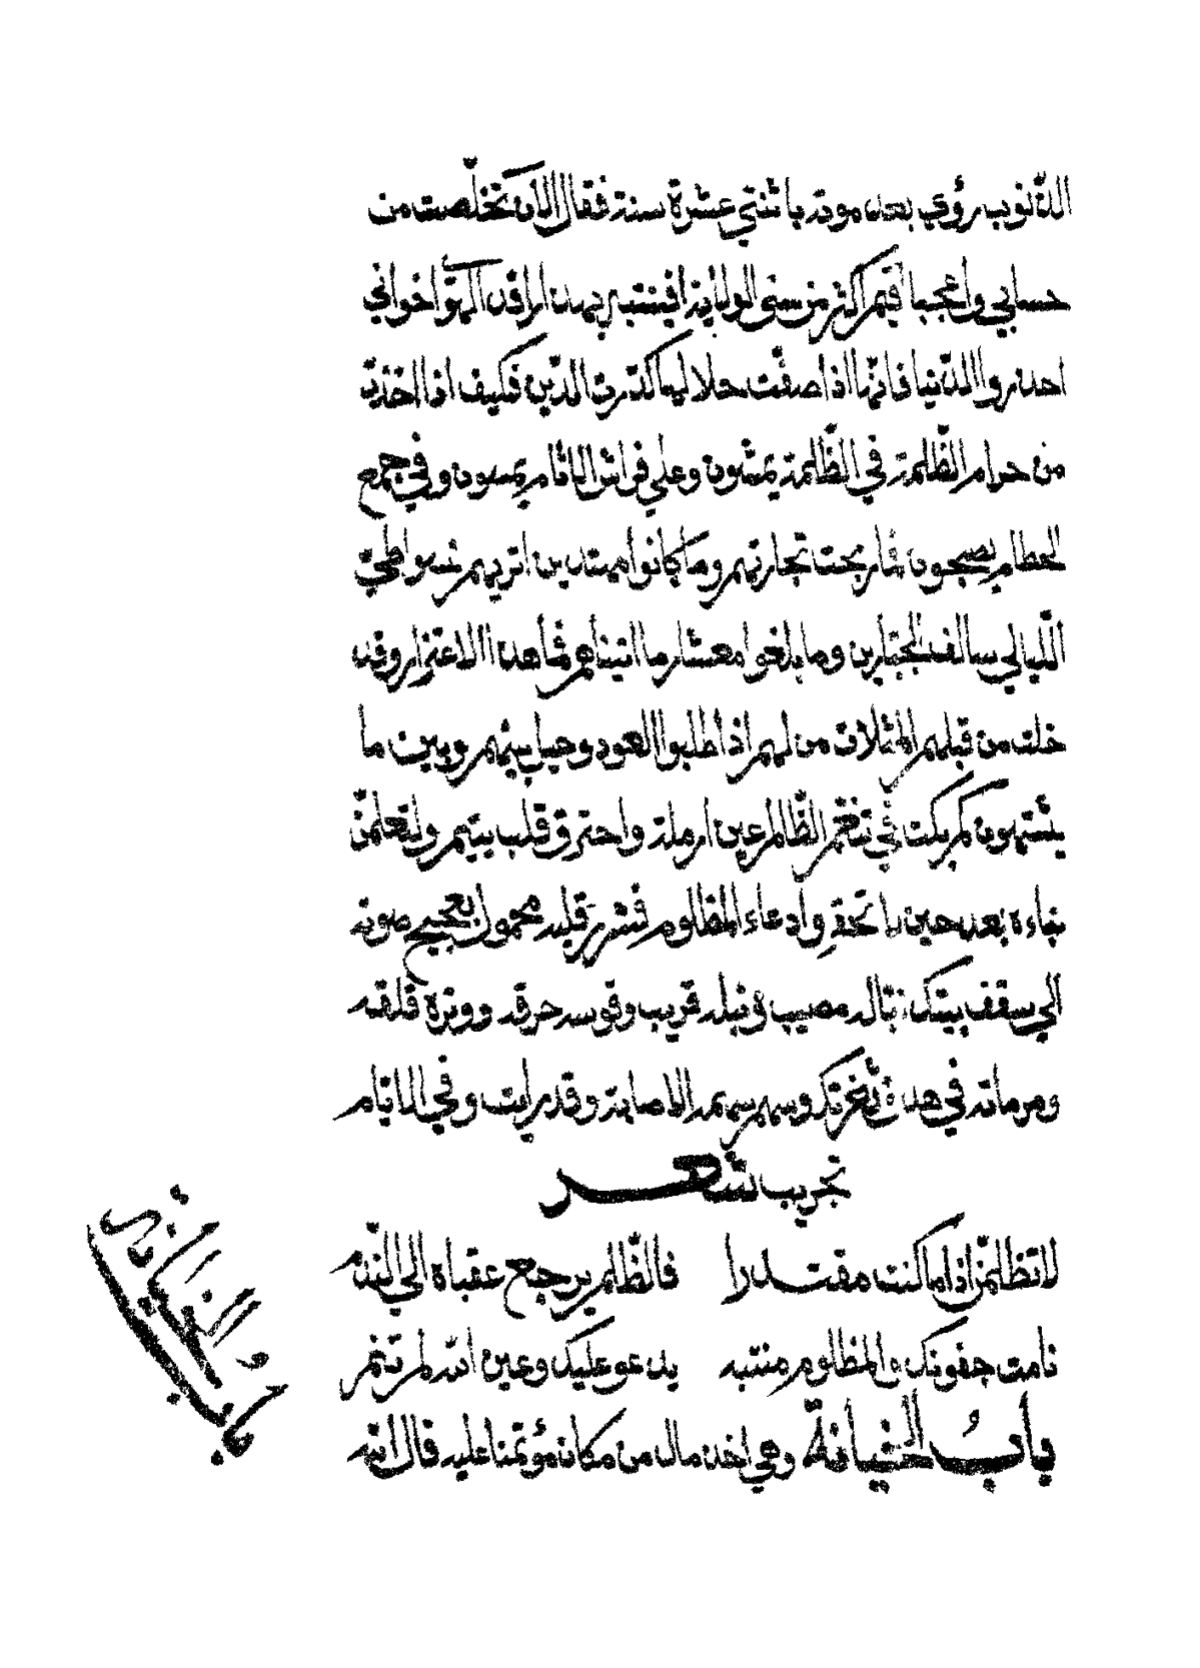 الذنوب رؤي بعد موته باثنتي عشرة سنة فقال الان تخلّصت من
حسابي واعجبا اقيم اكثر من سني الولاية افينتبه بهذا الراقد المتوّا خواني
احذروا الدّنيا فانّها اذا صفّت حلالها كدّرت الدّين فكيف اذا اخذت
من حرام الظّلمة في الظّلمة يمشون وعلي فراش الاثام يمسون وفي جمع
الحطام يصبحون فما ربحت تجارتهم وما كانوا مهتدين اتريهم نسوا طيّ
اللّيالي سالف الجبّارين وما بلغوا معشار ما اتيناهم فما هذا الاغترار وقد
خلت من قبلهم المثلات من لهم اذا طلبوا العود وحيل بينهم وبين ما
يشتهون كم بكت في تنغّم الظّالم عين ارملة واحترق قلب يتيم ولتعلمنّ
نباءه بعد حين ما تحقروا دعاء المظلوم فشرر قلبه محمول بعجيج صوته
الي سقف بيتك نباله مصيبة ونبله قريب وقوسه حرقه ووتره قلقه
ومرماته في هدف ثغرتك وسهم سهمه الاصابة وقد رايت وفي الايّام
تجريب شعر
لا تظلمنّ اذا ما كنت مقتدرا فالظّلم يرجع عقباه الي النّدم
نامت جفونك والمظلوم منتبه يدعو عليك وعين الله لم تنم
بابُ الخيانة وهي اخذ مال من مكانه مؤتمنا عليه قال الله